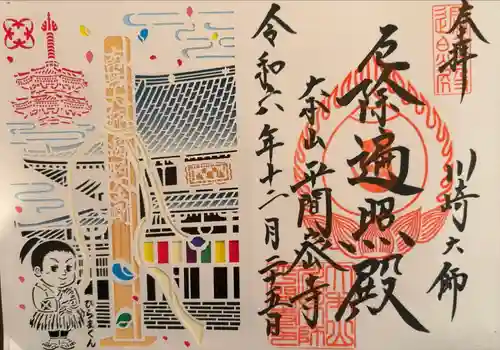 奉拝
川崎大師
厄除遍照殿
大本山 平間寺
令和六年十二月二十五日
ひらまくん